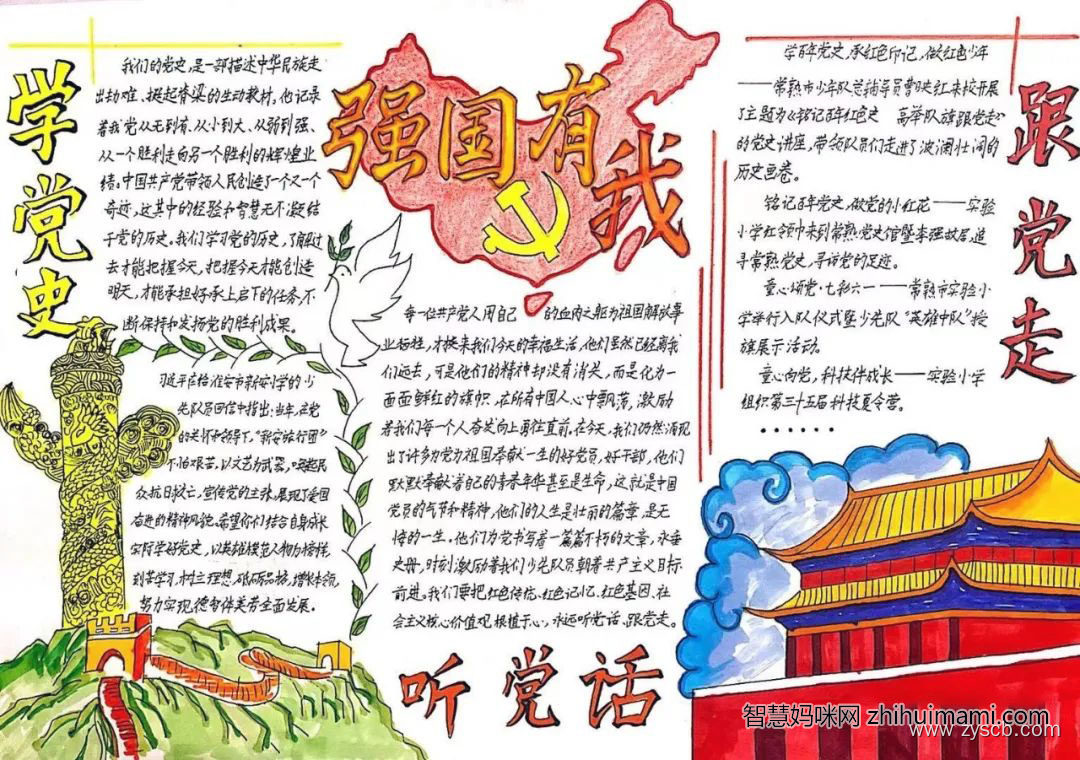 学党史
强国有我
跟党走
听党话
我们的党史,是一部描述中华民族走
出劫难、挺起脊梁的生动教材。他记录
着我党从无到有、从小到大、从弱到强、
从一个胜利走向另一个胜利的辉煌业
绩。中国共产党带领人民创造了一个又一个
奇迹,这其中的经验和智慧无不凝结
于党的历史。我们学习党的历史,了解过
去才能把握今天,把握今天才能创造
明天,才能承担好承上启下的任务,不
断保持和发扬党的胜利成果。
习近平在给淮安市新安小学的少
先队员回信中指出:当年,在党
的关怀和领导下,"新安旅行团"
不怕艰苦,以文艺为武器,唤起民
众抗日救亡,宣传党的主张,展现了爱国
奋进的精神风貌。希望你们结合自身成长
实际学好党史,以英雄模范人物为榜样,
刻苦学习,树立理想,砥砺品格,增长本领,
努力实现德智体美劳全面发展。
每一位共产党人用自己 的血肉之躯为祖国解放事
业牺牲,才换来我们今天的幸福生活,他们虽然已经离我
们远去,可是他们的精神却没有消失,而是化为一
面面鲜红的旗帜,在所有中国人心中飘荡,激励
着我们每一个人奋发向上勇往直前。在今天,我们仍然涌现
出了许多为党为祖国奉献一生的好党员,好干部,他们
默默奉献着自己的青春年华甚至是生命,这就是中国
党员的气节和精神,他们的人生是壮丽的篇章,是无
悔的一生。他们为党书写着一篇篇不朽的文章,永垂
史册,时刻激励着我们少先队员朝着共产主义目标
前进。我们要把红色传统、红色记忆、红色基因、社
会主义核心价值观根植于心,永远听党话、跟党走。
学百年党史,承红色印记,做红色少年
——常熟市少年队总辅导员曹映红来校开展
了主题为《铭记百年红色史 高举队旗跟党走》
的党史讲座,带领队员们走进了波澜壮阔的
历史画卷。
铭记百年党史,做党的小红花——实验
小学红领巾来到常熟党史馆暨李强故居,追
寻常熟党史,寻访党的足迹。
童心颂党·七彩六一——常熟市实验小
学举行入队仪式暨少先队"英雄中队"授
旗展示活动。
童心向党,科技伴成长——实验小学
组织第三十五届科技夏令营。
······
智慧妈咪网 zhihuimami.com
www.zyscb.com